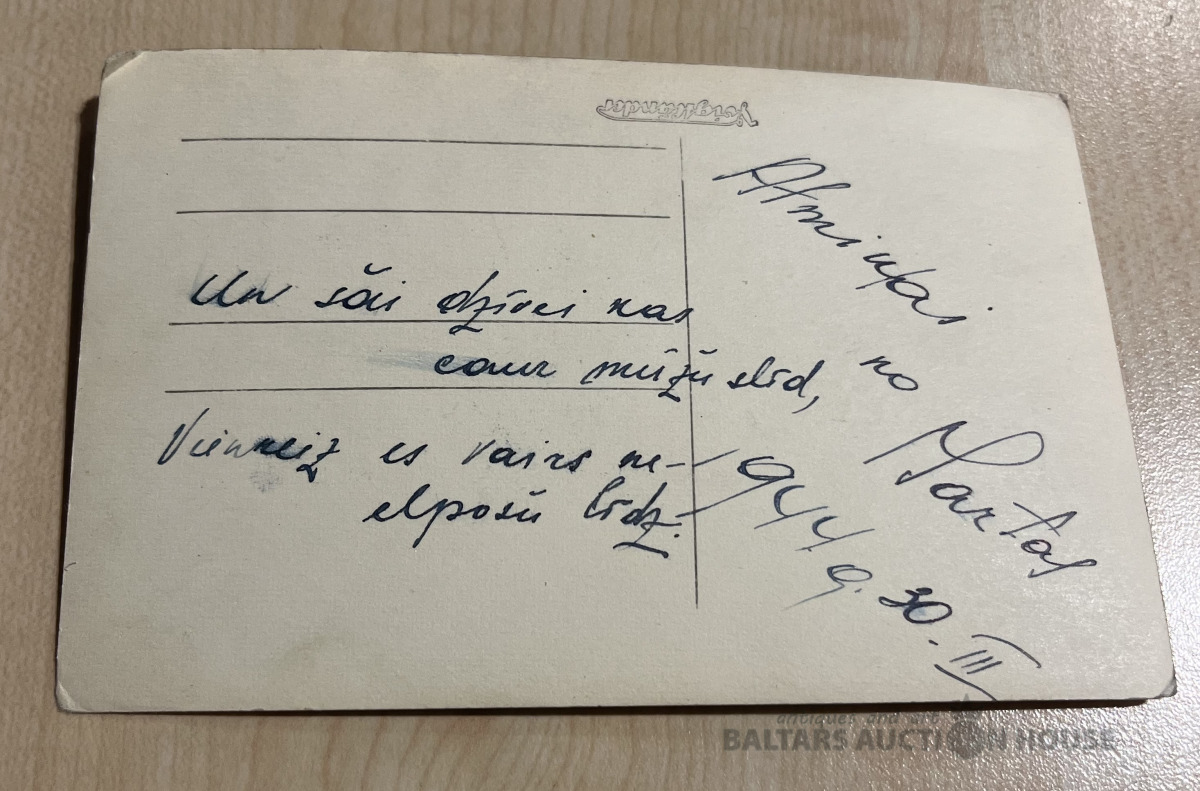 Voigtländer
Un šai dzīvei kas
caur mūžu slīd,
Vienreiz es vairs ne-
elpošu līdz.
Atmiņai
no
Martas
944. g. 30. III
antiques and art
BALTARS AUCTION HOUSE